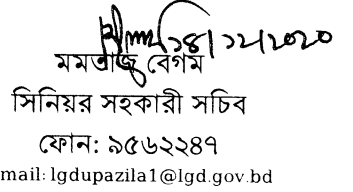 ১৪/১২/২০২০
মমতাজ বেগম
সিনিয়র সহকারী সচিব
ফোন: ৯৫৬২২৪৭
mail: lgdupazila1@lgd.gov.bd